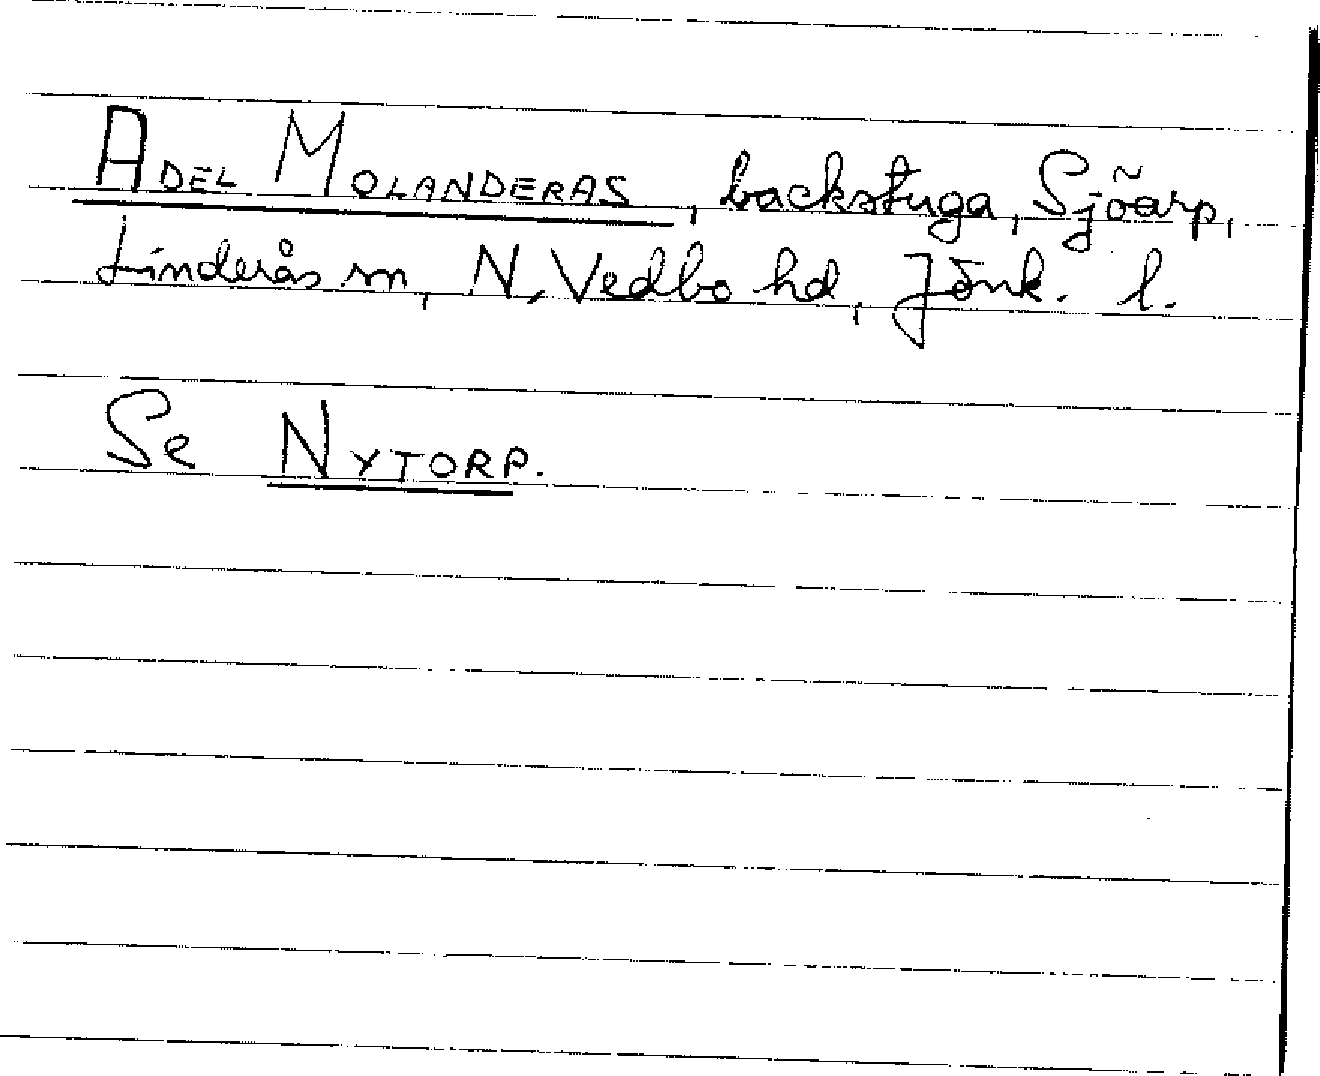 ADEL MOLANDERAS, backstuga, Sjöarp,
Linderås sn, N. Vedbo hd, Jönk. l.
Se NYTORP.